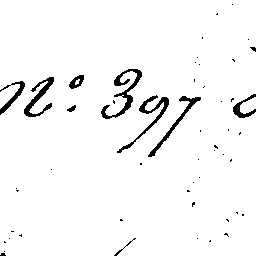 No: 397